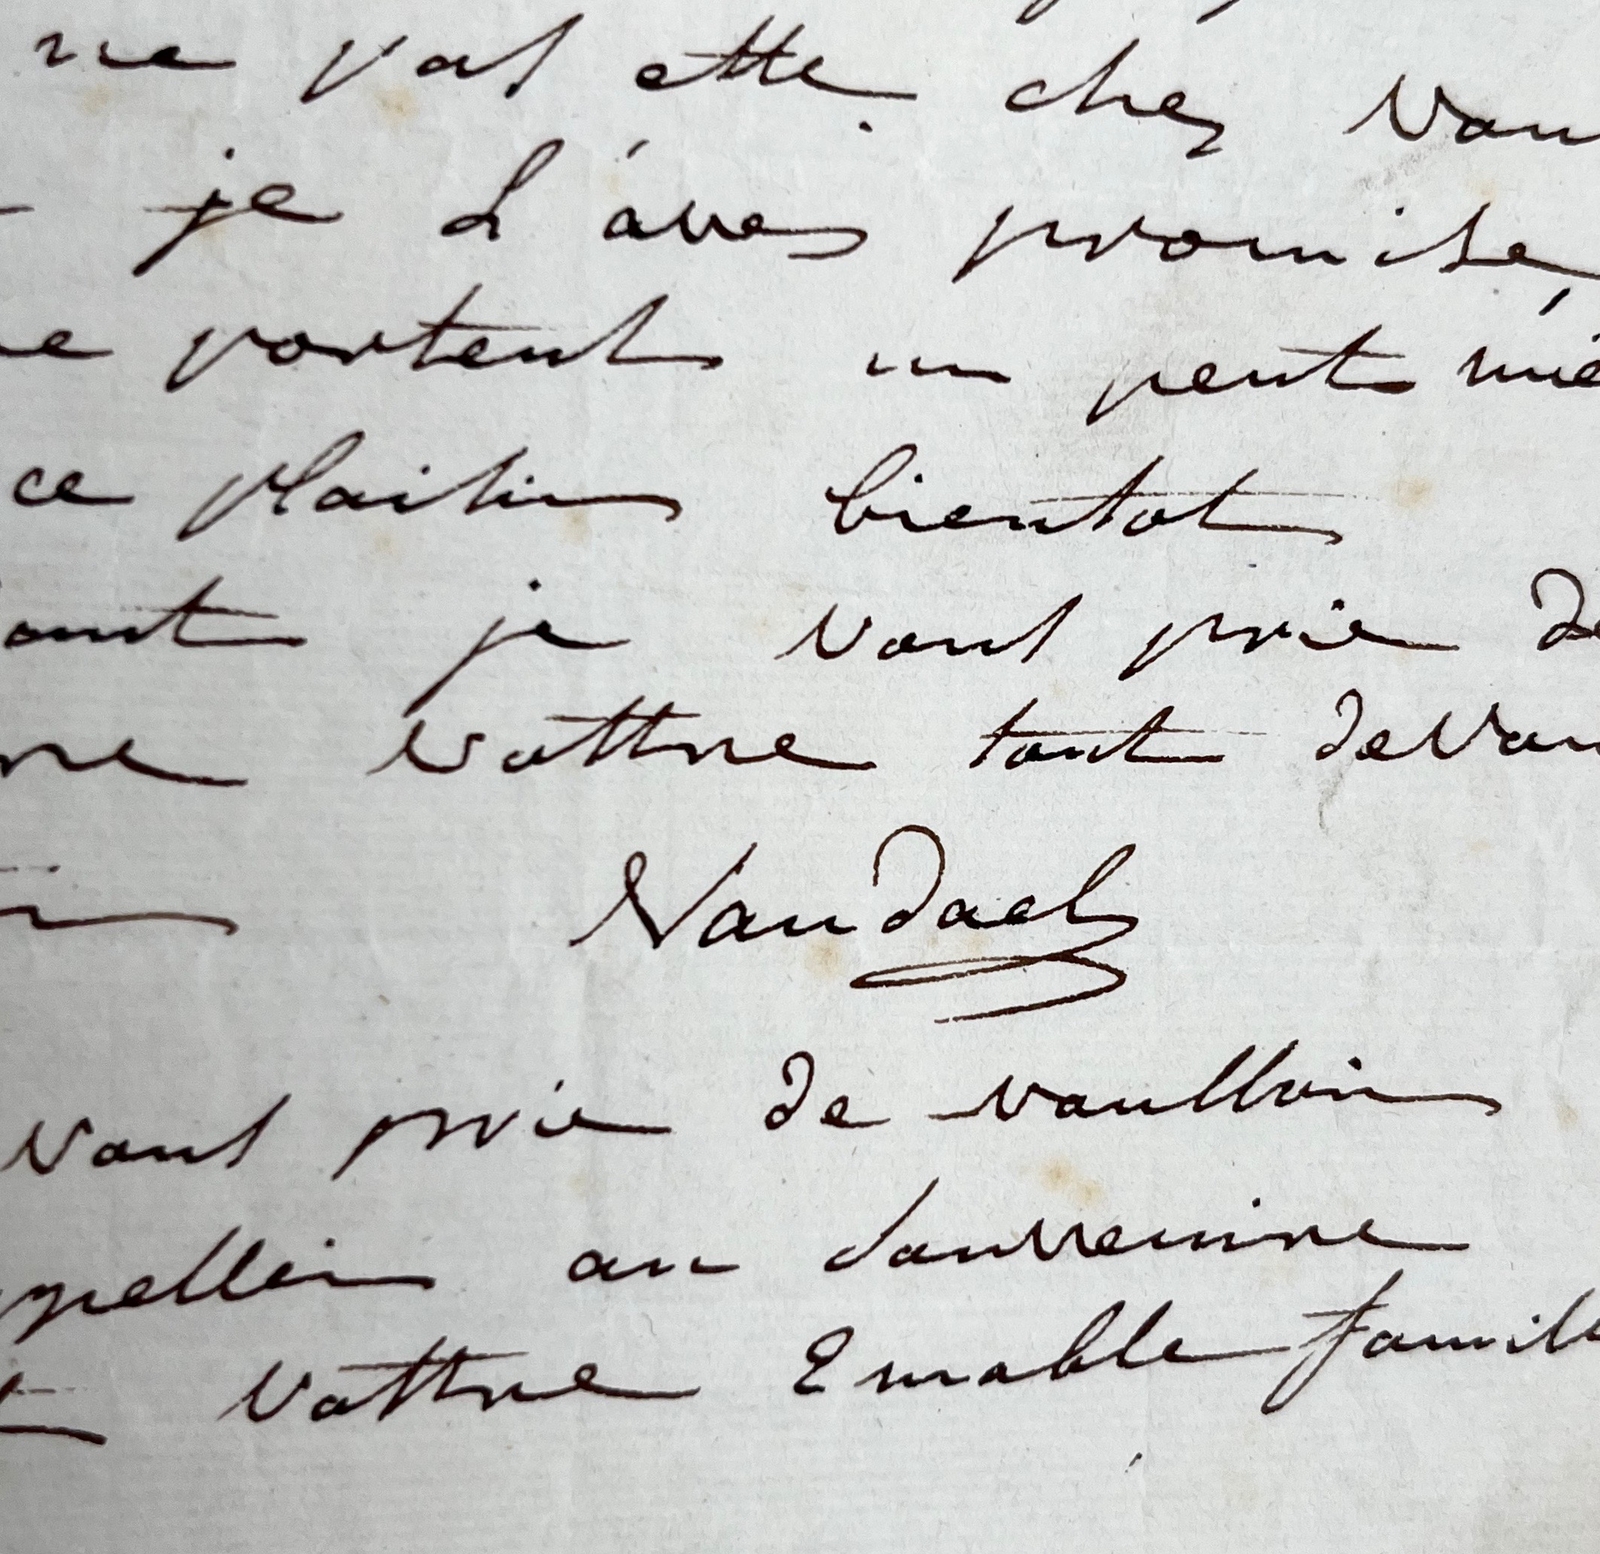 ne pas ette chez vou
je L'aves promise
e portent un peut mié
ce plaisir bientot
ant je vous prie de
re vottre tout devou
Vandael
vous prie de voulloir
ppeller au souvenire
vottre Emable famill